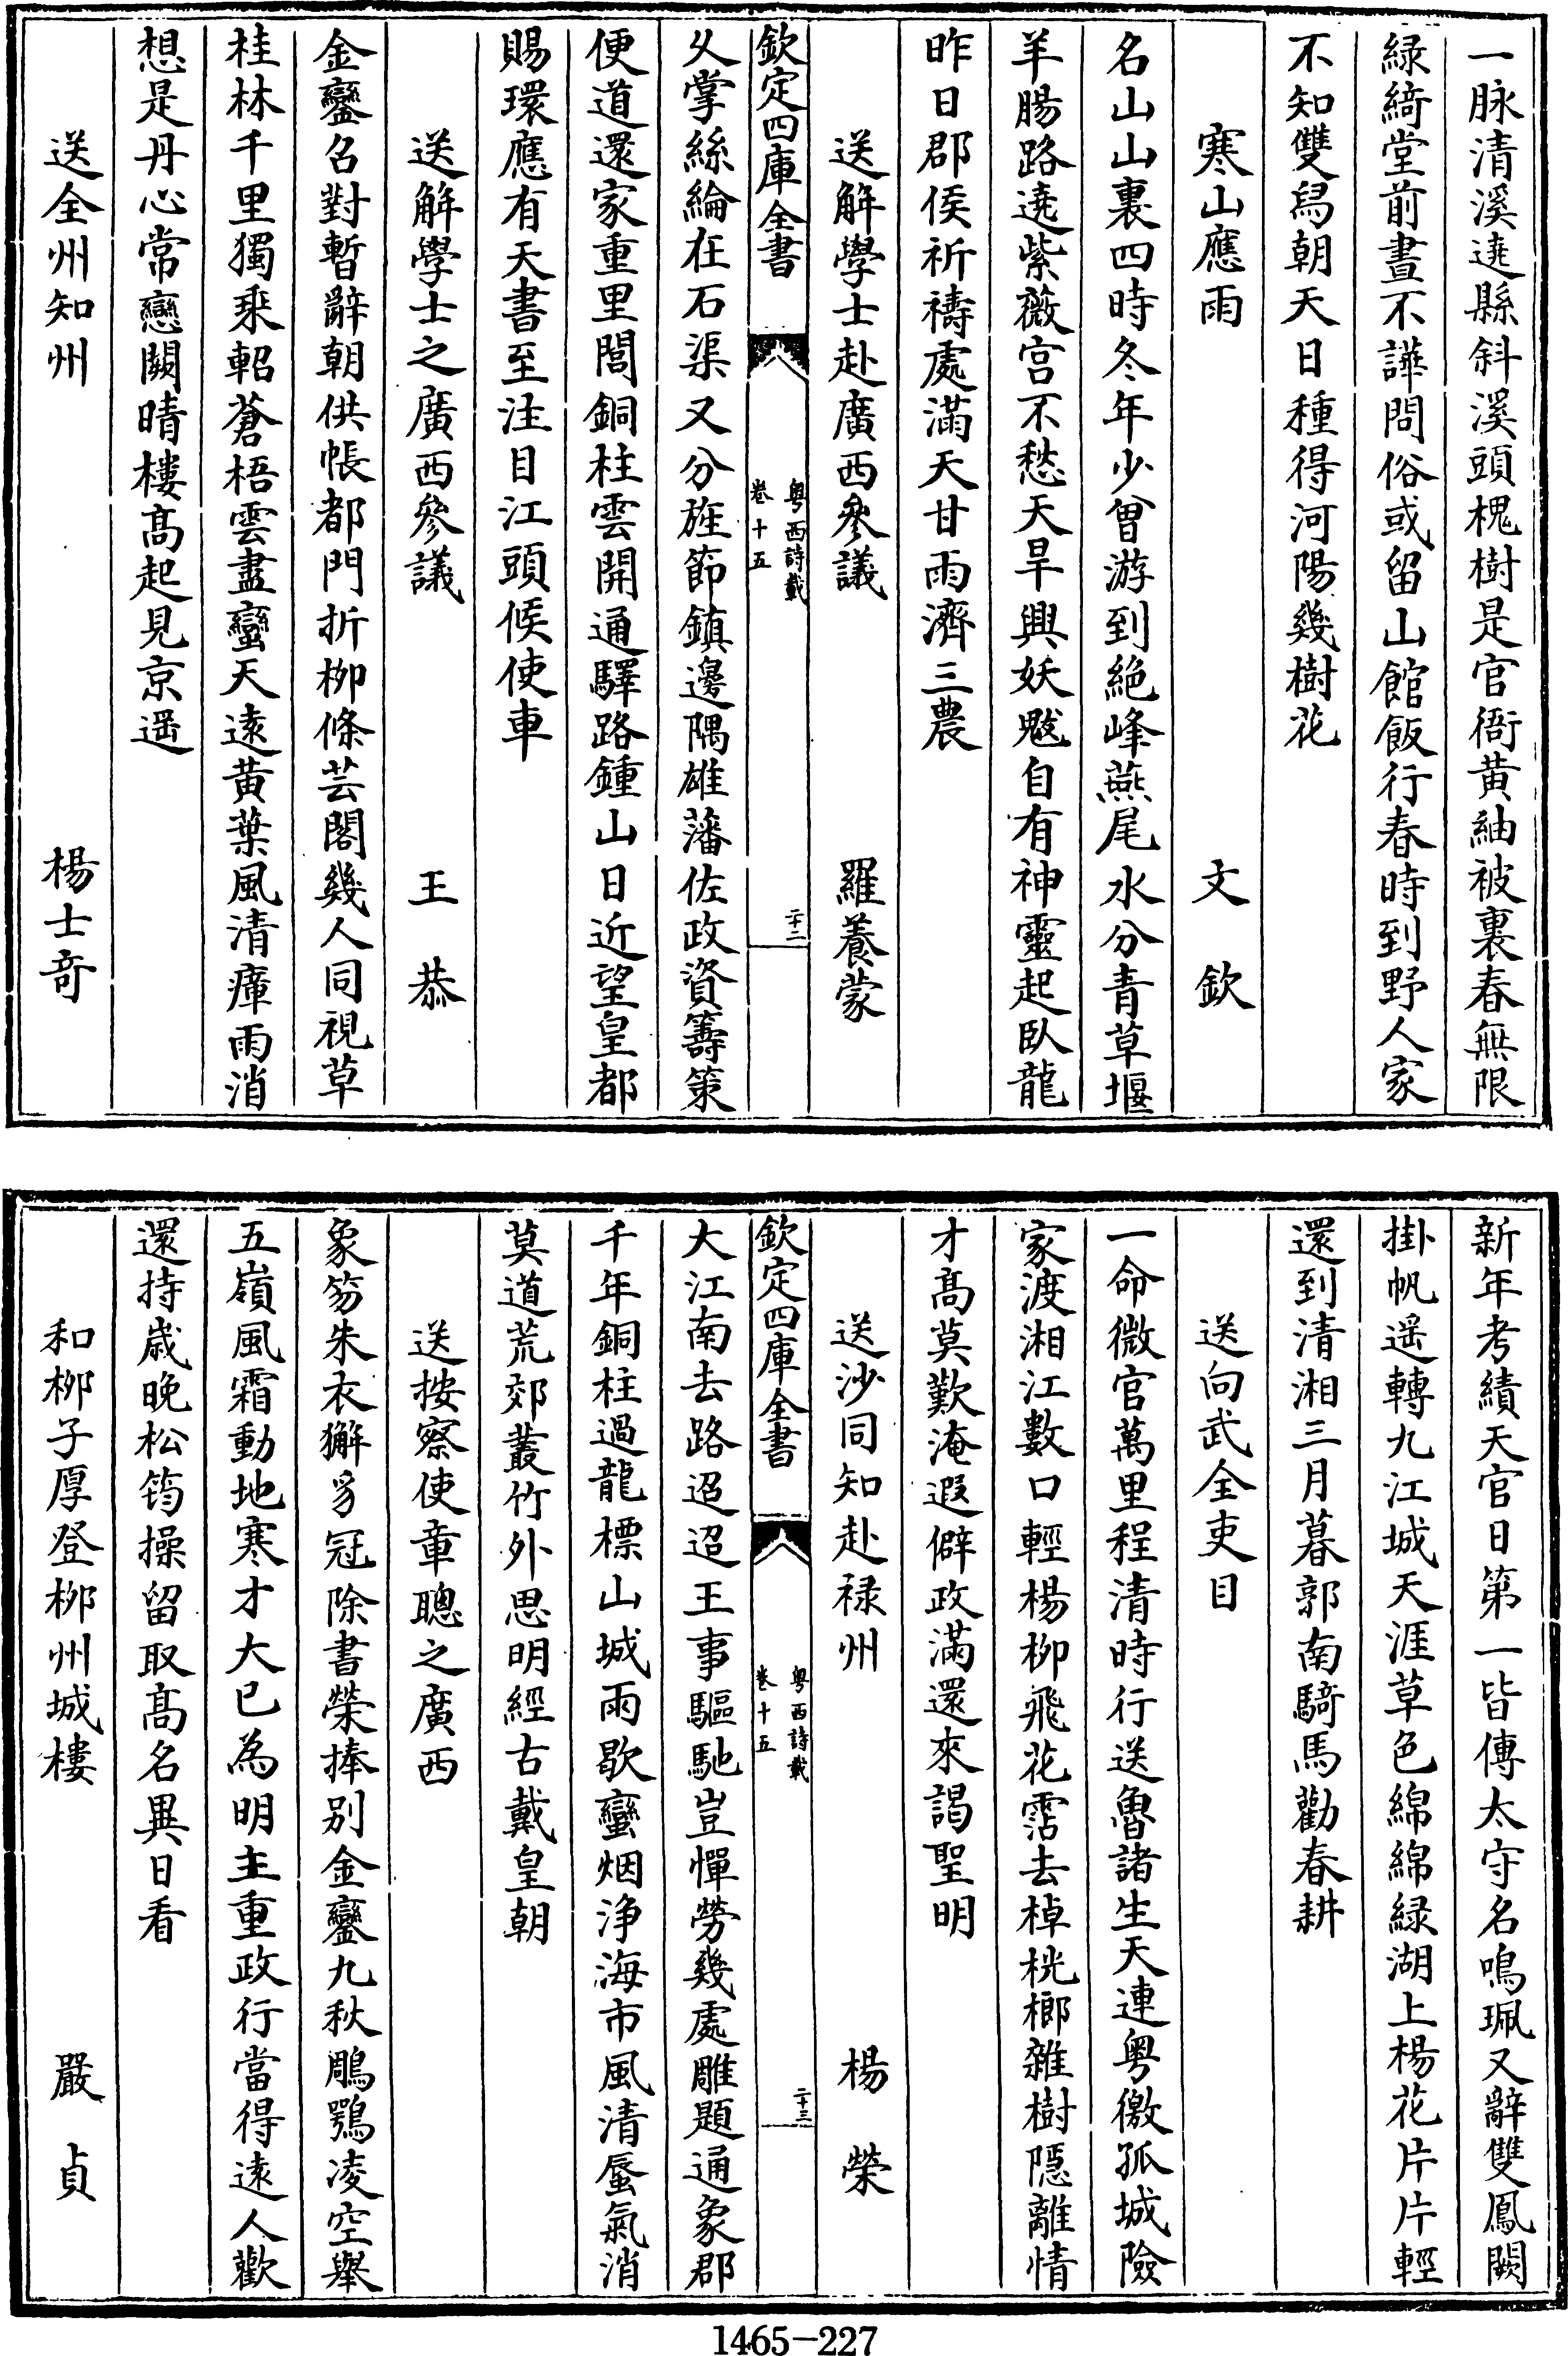 一脉清溪遶縣斜溪頭槐樹是官衙黄紬被裏春無限
緑綺堂前晝不譁問俗或留山館飯行春時到野人家
不知雙舄朝天日種得河陽幾樹花
寒山應雨 文欽
名山山裏四時冬年少曾游到絶峰燕尾水分青草堰
羊腸路遶紫薇宫不愁天旱興妖魃自有神靈起臥龍
昨日郡侯祈禱處滿天甘雨濟三農
送解學士赴廣西參議 羅養蒙
欽定四庫全書 粤西詩載 卷十五 二十二
乆掌絲綸在石渠又分旌節鎮邊隅雄藩佐政資籌策
便道還家重里閭銅柱雲開通驛路鍾山日近望皇都
賜環應有天書至注目江頭候使車
送解學士之廣西參議 王恭
金鑾召對暫辭朝供帳都門折栁條芸閣幾人同視草
桂林千里獨乘軺蒼梧雲盡蠻天遠黄葉風清瘴雨消
想是丹心常戀闕晴樓髙起見京遥
送全州知州 楊士奇
新年考績天官日第一皆傳太守名鳴珮又辭雙鳳闕
掛帆遥轉九江城天涯草色綿綿緑湖上楊花片片輕
還到清湘三月暮郭南騎馬勸春耕
送向武全吏目
一命微官萬里程清時行送魯諸生天連粤徼孤城險
家渡湘江數口輕楊栁飛花霑去棹桄榔雜樹隠離情
才髙莫歎淹遐僻政滿還來謁聖明
送沙同知赴禄州 楊榮
欽定四庫全書 粤西詩載 卷十五 二十三
大江南去路迢迢王事驅馳豈憚勞幾處雕題通象郡
千年銅柱過龍標山城雨歇蠻烟浄海市風清蜃氣消
莫道荒郊叢竹外思明經古戴皇朝
送按察使章聰之廣西
象笏朱衣獬豸冠除書榮捧别金鑾九秋鵰鶚凌空舉
五嶺風霜動地寒才大已為明主重政行當得遠人歡
還持嵗晚松筠操留取髙名異日看
和栁子厚登栁州城樓 嚴貞
1465-227